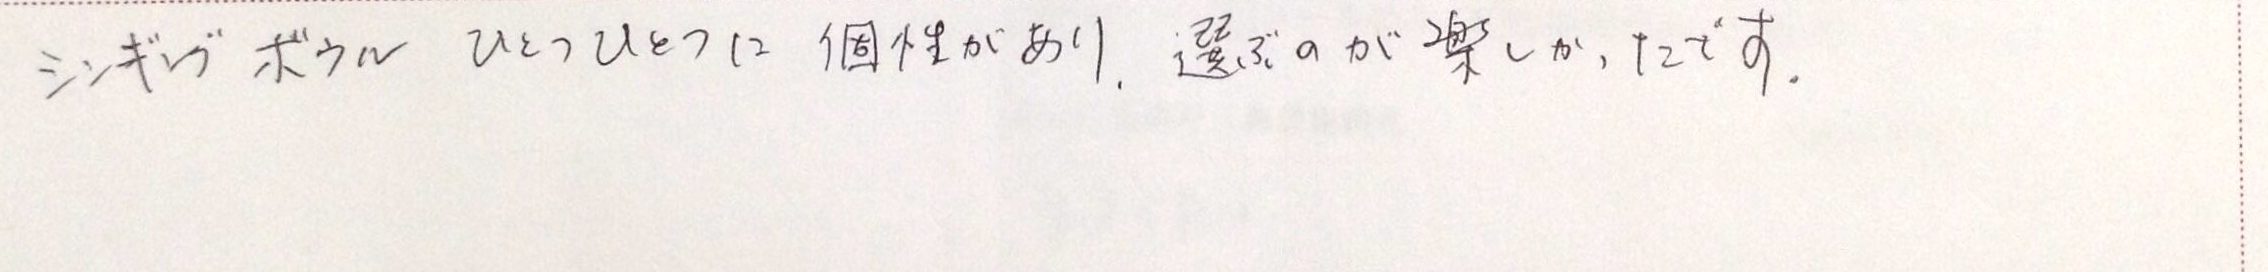 シンギングボウル ひとつひとつに 個性があり、選ぶのが楽しかったです。